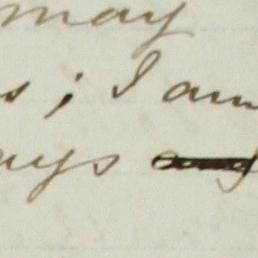 may
s; I am
ays